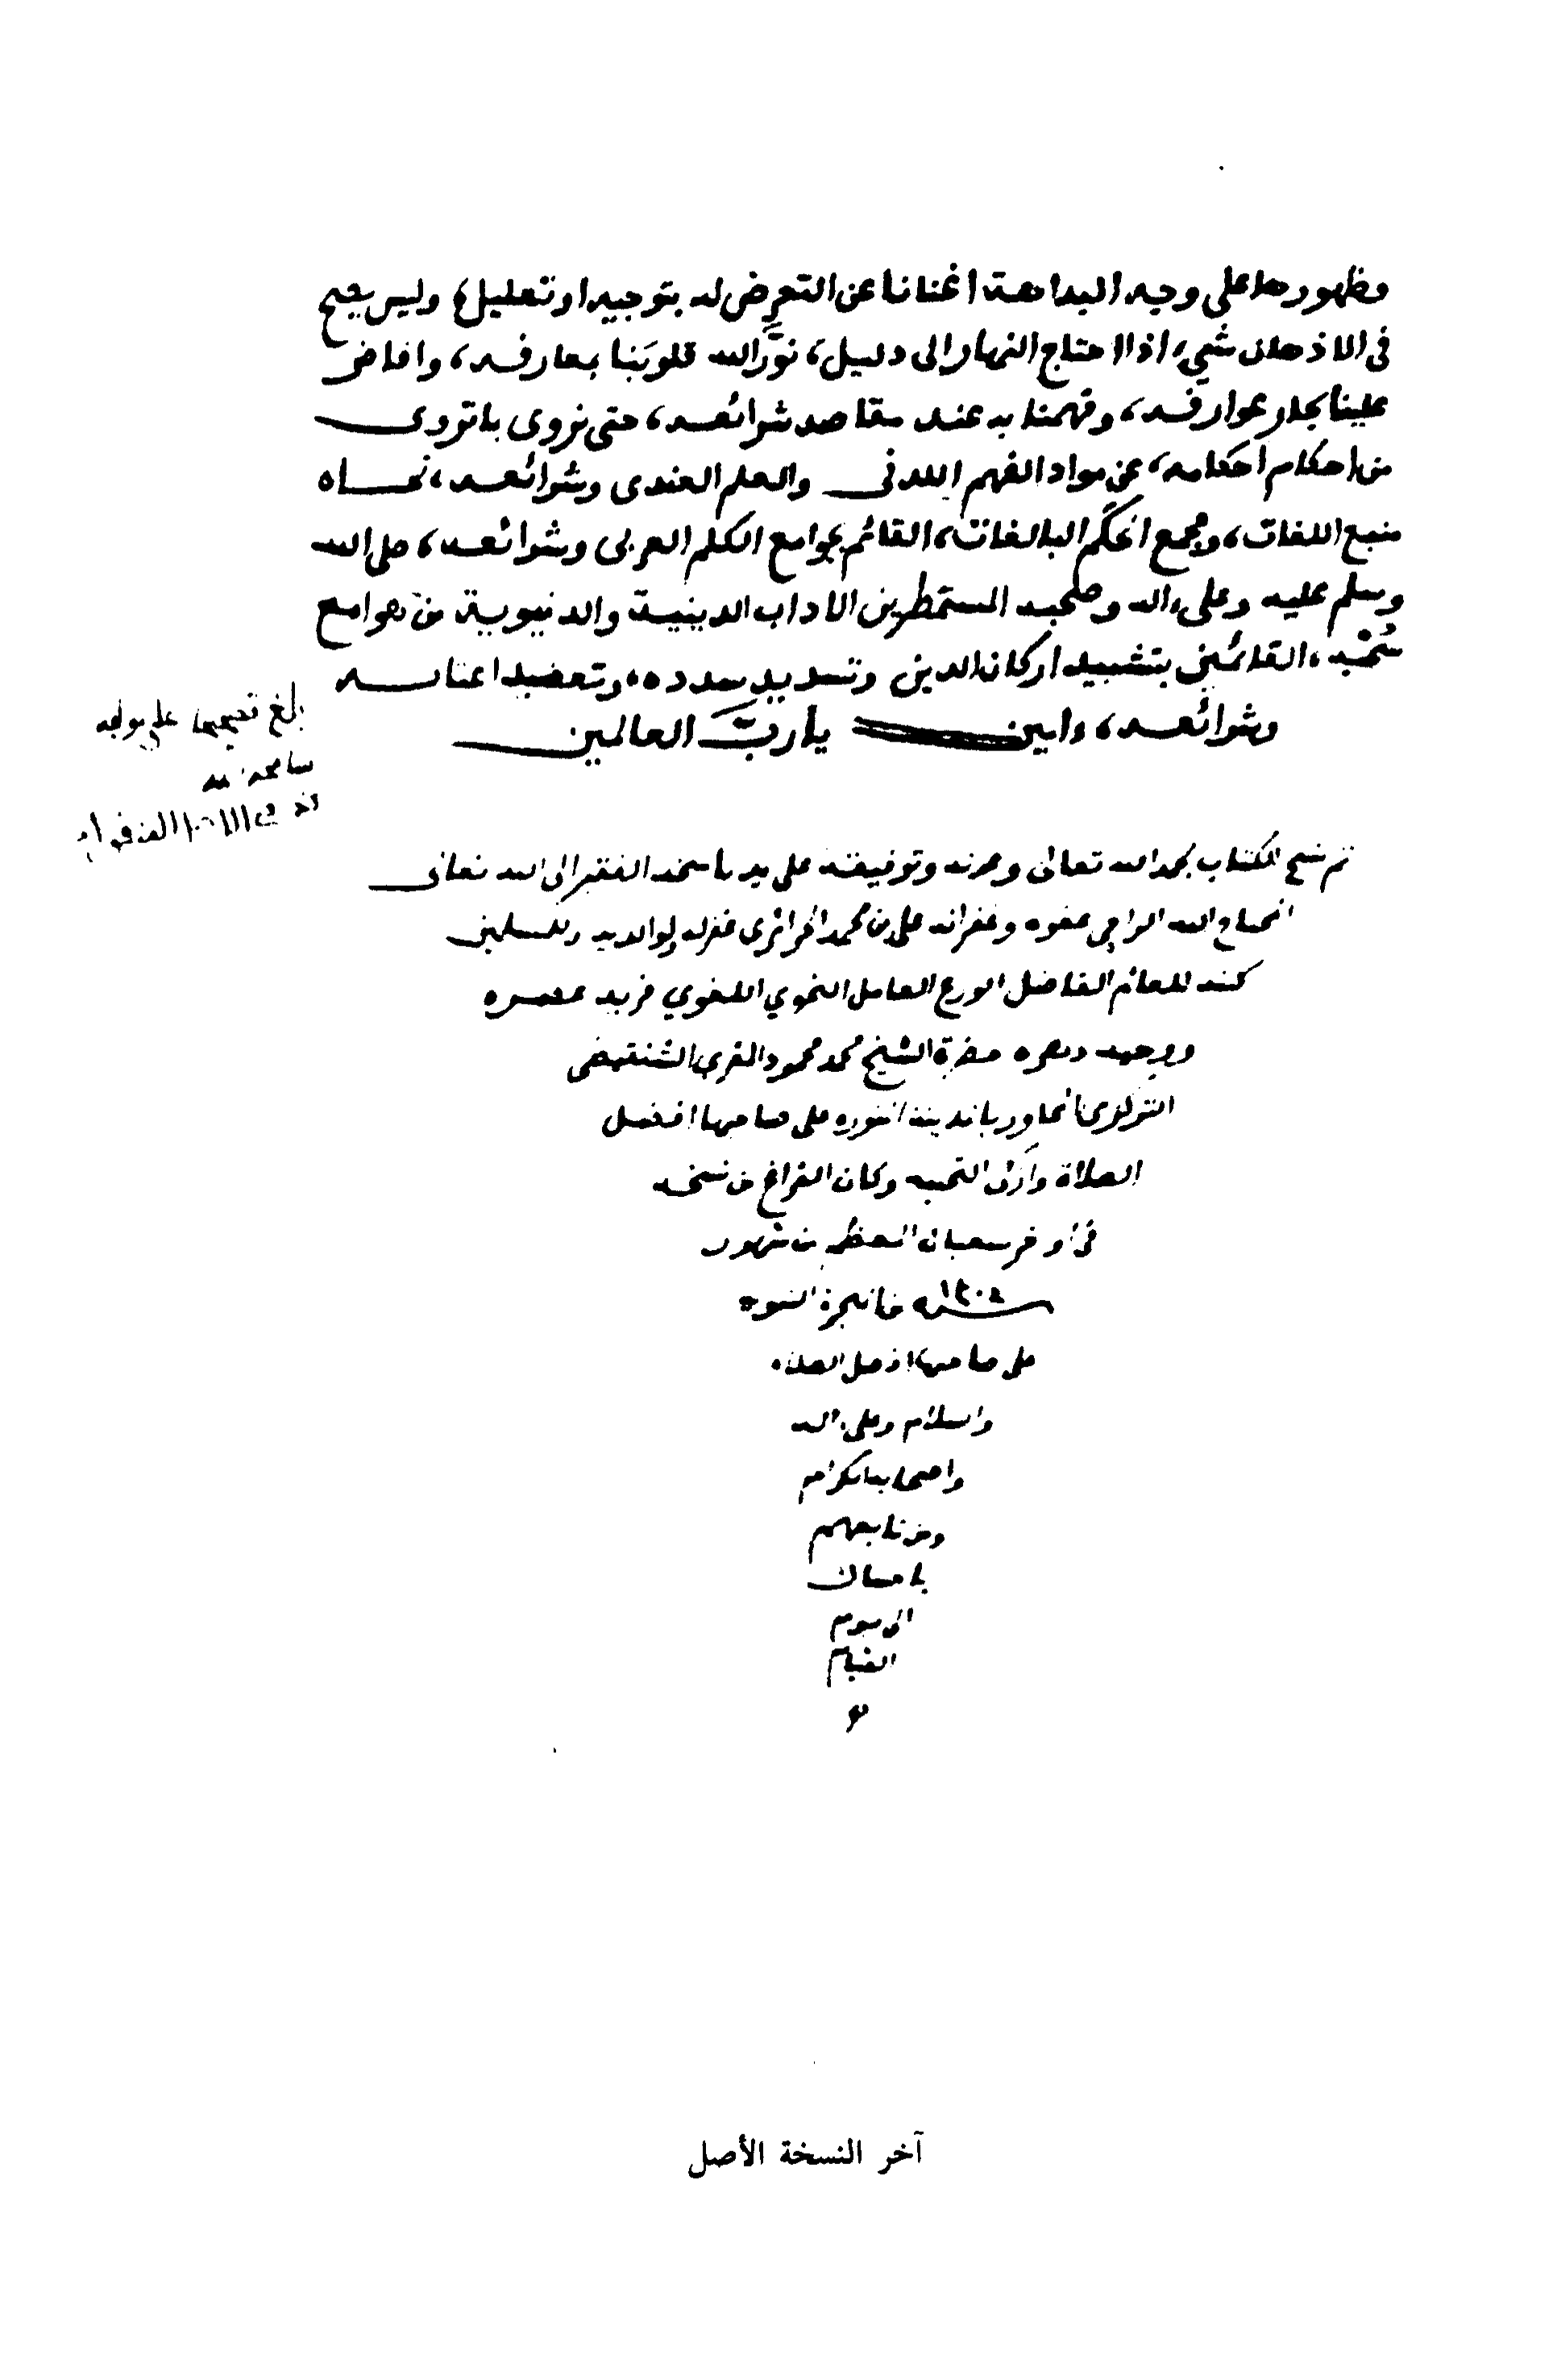 وظهورها على وجه البداهة اغنانا عن التعرض له بتوجيه او تعليل، وليس يصح
في الاذهان شيء، اذا احتاج النهار الى دليل، نوَّر الله قلوبَنا بمعارفه، وافاض
علينا بحار عوارفه، وفهمنا به عند مقاصد شرائعه، حتى نروى با تروى
من احكام احكامه، عن مواد الفهم اللدني والعلم العندى وشرائعه،
منبع اللغات، ومجمع الحِكَم البالغات، القائم بجوامع الكلم العربى وشرائعه، صلى الله
وسلم عليه وعلى ءاله وصحبه المستمطرين الاداب الدينية والدنيوية من هوامع
سُحُبه، القائمين بتشييد اركان الدين وتسديد سدده، وتعضيد اعنا
وشرائعه، ءامين يا ربَّ العالمين
بلغ تصحيحا على مولفه
سامحه الله
في
تم نسخ الكتاب بحمد الله تعالى وعونه وتوفيقه على يد ناسخه الفقير الى الله تعالى
المحتاج الله الراجى عفوه وغفرانه على بن محمد الجزائرى غفر له ولوالديه وللمسلمين
كتبه للعالم الفاضل الورع العامل النحوي اللغوي فريد عصره
ووحيد دهره حضرة الشيخ محمد محمود المغربى الشنقيطى
التركزى المجاور بالمدينة المنوره على صاحبها افضل
الصلاة وازكى التحيه وكان الفراغ من نسخه
فى اواخر شعبان المعظم من شهور
سنه من الهجرة النبويه
على صاحبها افضل الصلاه
والسلام وعلى ءاله
واصحابه الكرام
ومن تابعهم
باحسان
الى يوم
القيام
آخر النسخة الأصل